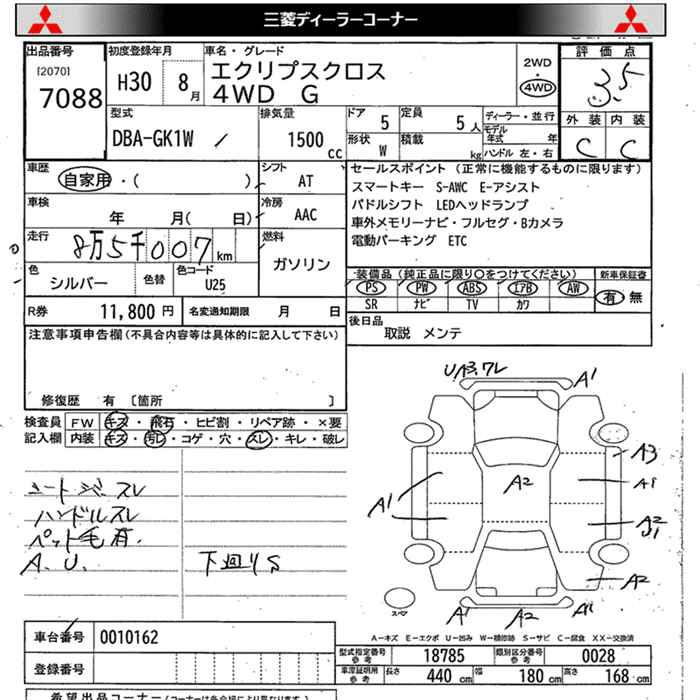 三菱ディーラーコーナー
出品番号 初度登録年月 車名・グレード 評価点
[2070]
7088 H30 8月 エクリプスクロス 2WD・4WD 3.5
4WD G
型式 排気量 ドア 5 定員 5人 ディーラー・並行 外装 内装
DBA-GK1W 1500cc 形状 W 積載 kg モデル年式 年 C C
ハンドル 左・右
車歴 シフト セールスポイント (正常に機能するものに限ります)
自家用・( ) AT スマートキー S-AWC E-アシスト
パドルシフト LEDヘッドランプ
車検 年 月( 日) 冷房 AAC 車外メモリーナビ・フルセグ・Bカメラ
電動パーキング ETC
走行 8万5千007km 燃料 ガソリン
色 シルバー 色替 色コード U25
装備品 (純正品に限り○をつけてください) 新車保証書
PS PW ABS エアB AW 有 無
SR ナビ TV カワ
R券 11,800円 名変通知期限 月 日 後日品
取説 メンテ
注意事項申告欄 (不具合内容等は具体的に記入して下さい)
修復歴 有 〔箇所 〕
検査員 FW キズ・飛石・ヒビ割・リペア跡・×要
記入欄 内装 キズ・汚レ・コゲ・穴・スレ・キレ・破レ
シートジミスレ
ハンドルスレ
ペット毛有.
A.U. 下廻りS
UA3.ワレ A1
A3
A1 A2 A1
A2
U1
A2
スペア A1 A2 A1
A-キズ E-エクボ U-凹み W-補修跡 S-サビ C-腐食 XX-交換済
車台番号 0010162
型式指定番号 参考 18785 類別区分番号 参考 0028
登録番号 車庫証明用 参考 長さ 440 cm 幅 180 cm 高さ 168 cm
希望出品コーナー (コーナーは各会場により異なります)